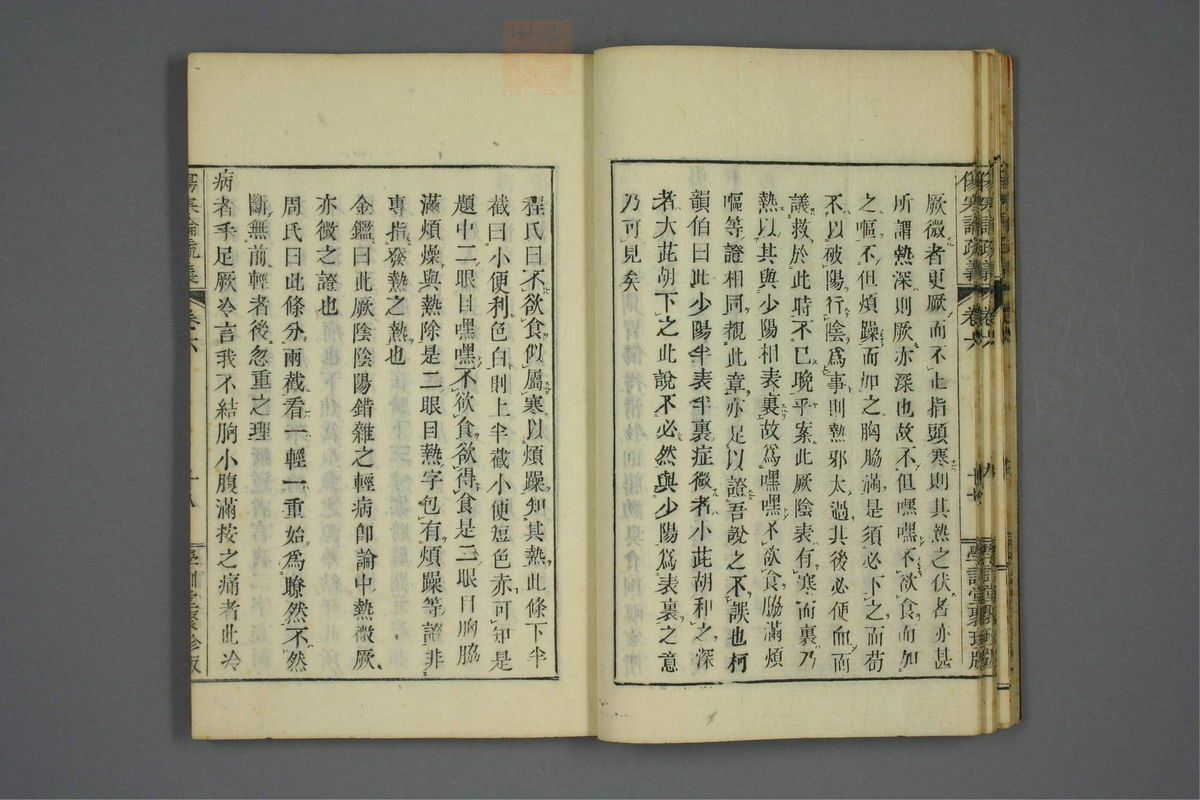 厥微者更厥而不止指頭寒則其熱之伏者亦甚
所謂熱深則厥亦深也故不但嘿嘿不欲食而如
之嘔不但煩躁而如之胸脇滿是須必下之而苟
不以破陽行陰爲事則熱邪太過其後必便血而
議救於此時不已晩乎案此厥陰表有寒而裏乃
熱以其與少陽相表裏故爲嘿嘿不欲食脇滿煩
嘔等證相同觀此章亦足以證吾說之不誤也柯
韻伯曰此少陽半表半裏症微者小茈胡和之深
者大茈胡下之此說不必然與少陽爲表裏之意
乃可見矣
程氏曰不欲食似屬寒以煩躁知其熱此條下半
截曰小便利色白則上半截小便短色赤可知是
題中二眼目嘿嘿不欲食欲得食是二眼目胸脇
滿煩躁與熱除是二眼目熱字包有煩躁等證非
專指發熱之熱也
金鑑曰此厥陰陰陽錯雜之輕病卽論中熱微厥
亦微之證也
周氏曰此條分兩截看一輕一重始爲瞭然不然
斷無前輕者後忽重之理
病者手足厥冷言我不結胸小腹滿按之痛者此冷
傷寒論疏義
卷六
十八
學訓堂聚珍版